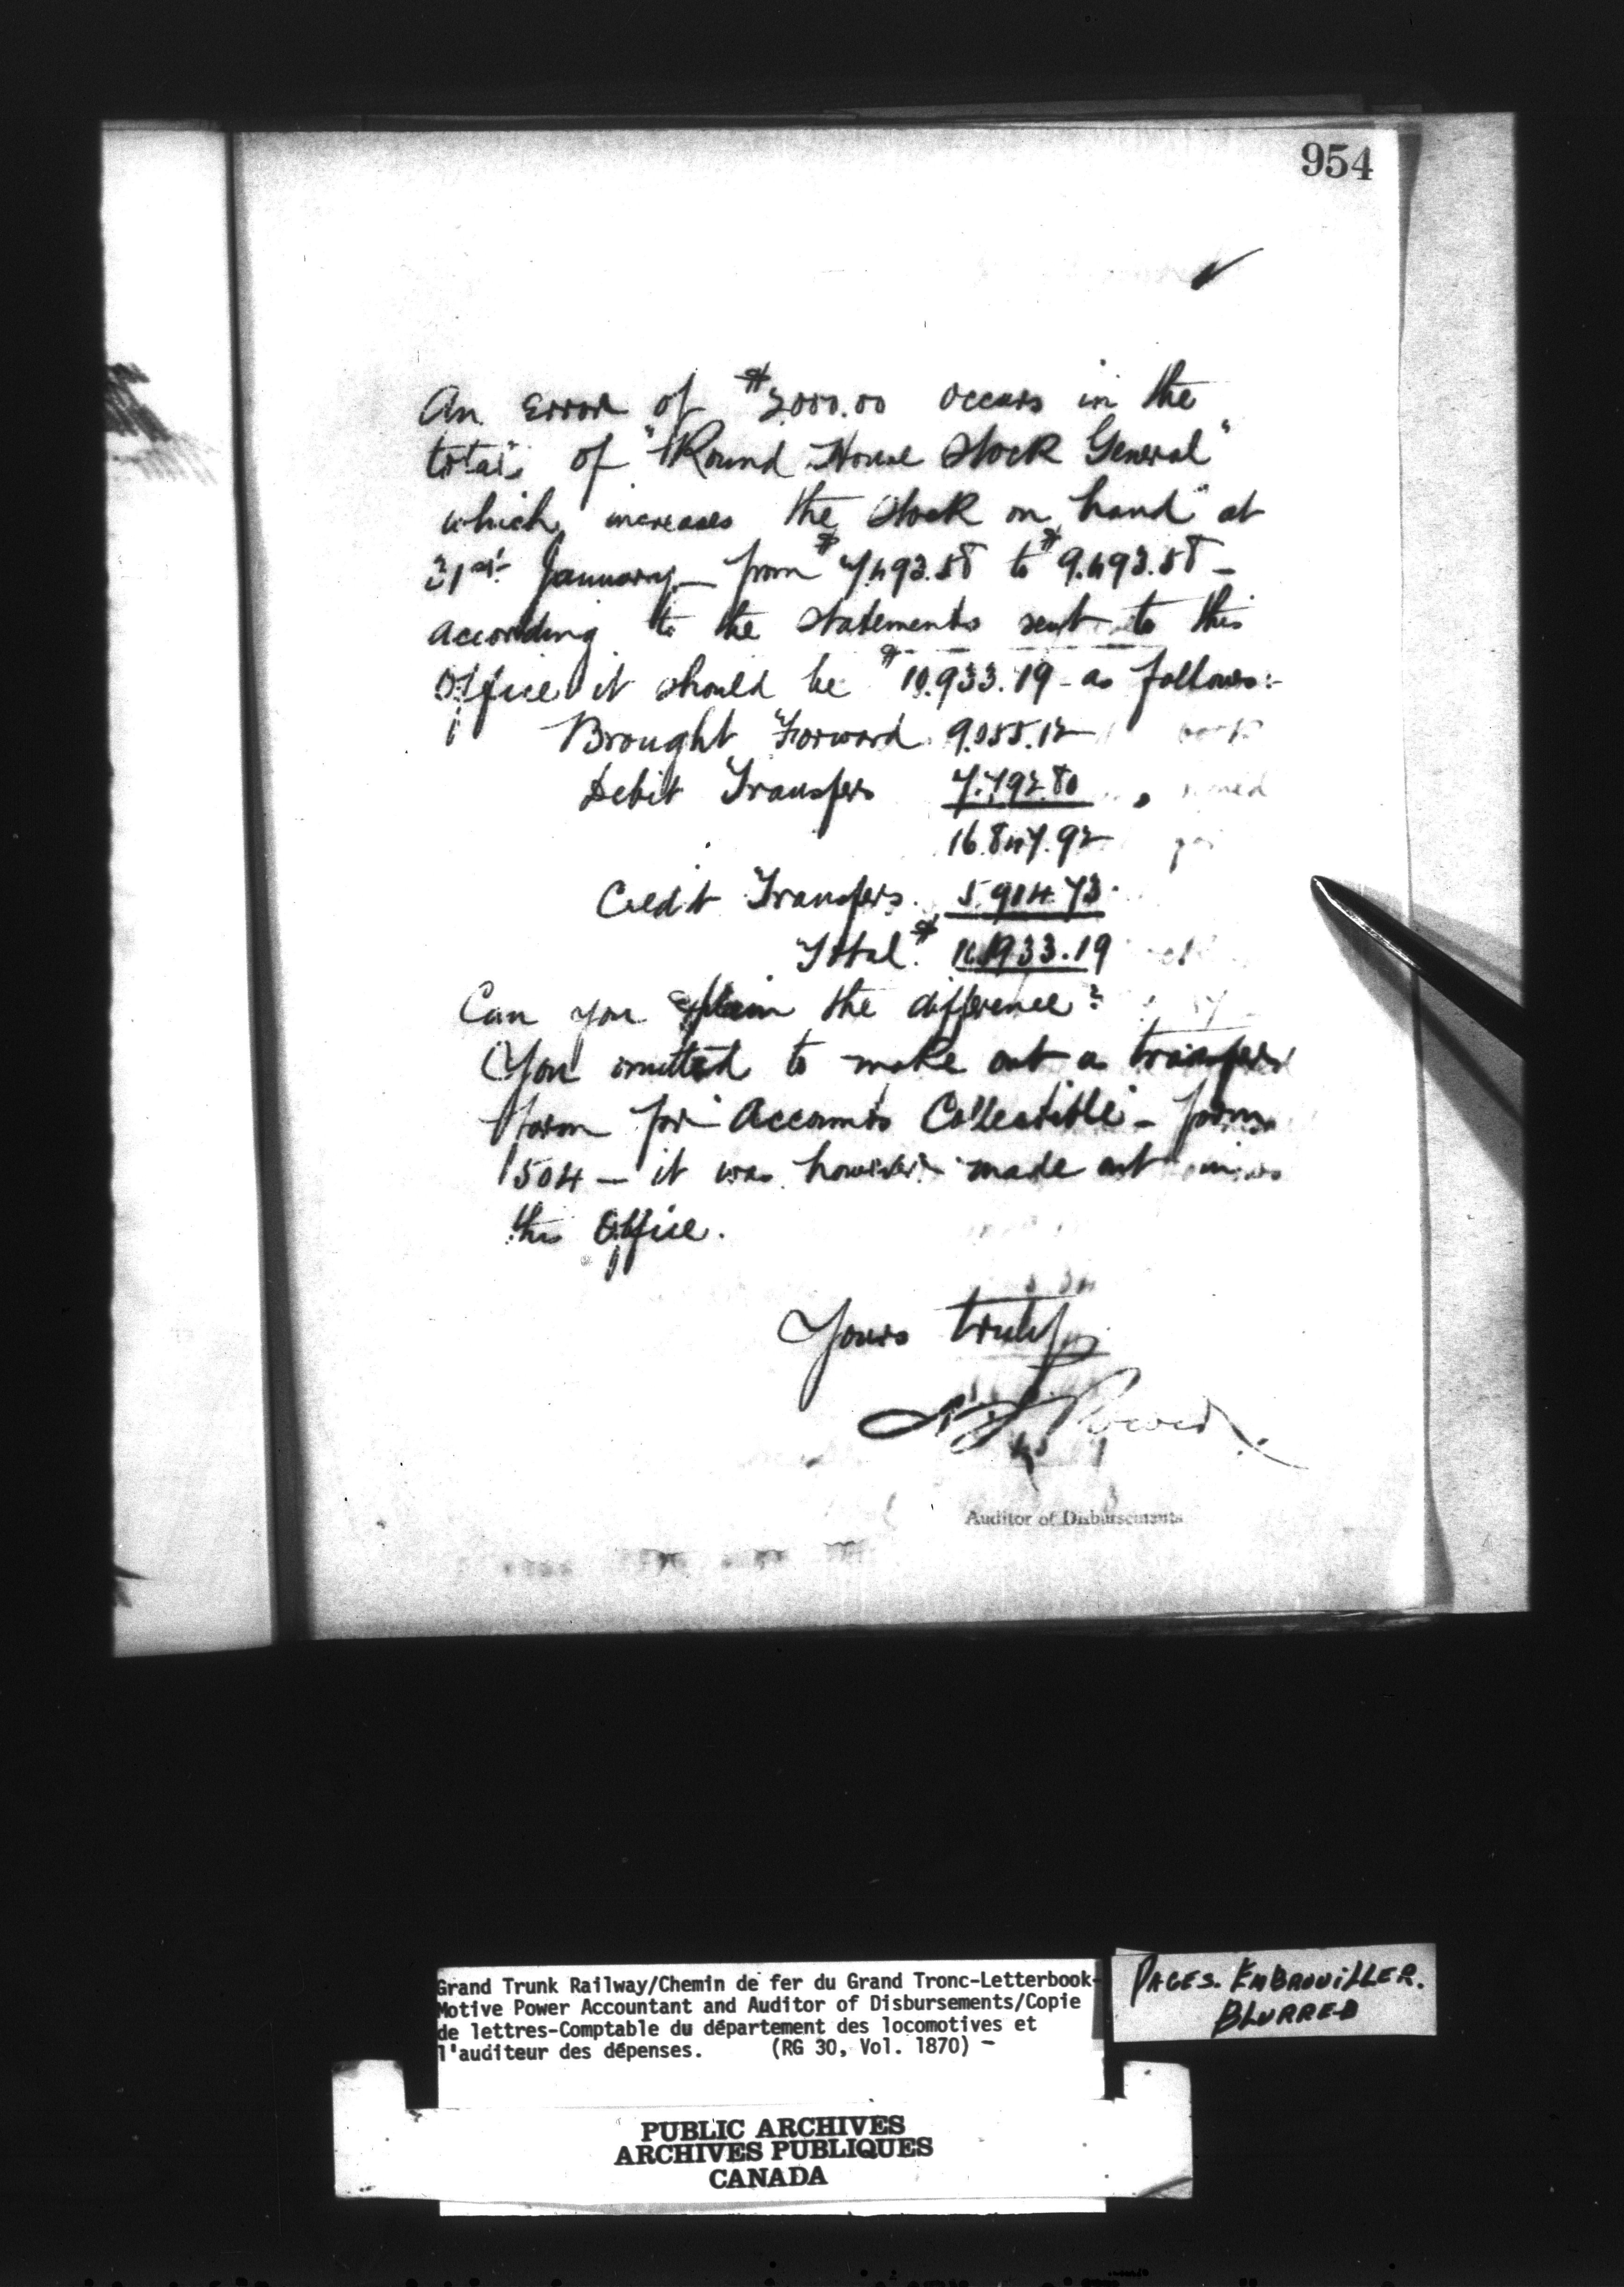 954
An error of $2000.00 occurs in the
totals of "Round House Stock General"
which increases the stock on hand at
31st January - from $7.493.58 to $9.493.58 -
according to the statements sent to this
Office it should be $10.933.19 - as follows:-
Brought Forward 9.055.12
Debit Transfers 7.792.80
16.847.92
Credit Transfers. 5.914.73
Total. $ 10.933.19
Can you explain the difference?
You omitted to make out a transfer
form for Accounts Collectible - form
1504 - it was however made out in
this Office.
Yours truly
Auditor of Disbursements
Grand Trunk Railway/Chemin de fer du Grand Tronc-Letterbook-
Motive Power Accountant and Auditor of Disbursements/Copie
de lettres-Comptable du département des locomotives et
l'auditeur des dépenses. (RG 30, Vol. 1870) -
PAGES. EMBROUILLER.
BLURRED
PUBLIC ARCHIVES
ARCHIVES PUBLIQUES
CANADA